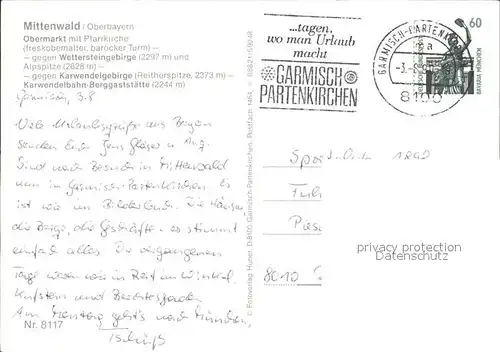 Mittenwald / Oberbayern
Obermarkt mit Pfarrkirche
(freskobemalter, barocker Turm) –
– gegen Wettersteingebirge (2297 m) und
Alpspitze (2628 m) –
– gegen Karwendelgebirge (Reitherspitze, 2373 m) –
Karwendelbahn-Bergstation (2244 m)
Garmisch, 3.8
Viele Urlaubsgrüße aus Bayern
senden Euch Jens Gläser u. Ang.
Sind nach Besuch in Mittenwald
nun in Garmisch-Partenkirchen. Es
ist wie im Bilderbuch. Die Häuser
die Berge, die Geschäfte - es stimmt
einfach alles. Die vergangenen
Tage waren wir in Reit im Winkel,
Kufstein und Berchtesgaden
Am Montag geht's nach München,
Tschüß
Nr. 8117
© Fotoverlag Huber, D 8100 Garmisch-Partenkirchen, Postfach
...tagen,
wo man Urlaub
macht
GARMISCH
PARTENKIRCHEN
GARMISCH-PARTENK
8100
60
BAVARIA MÜNCHEN
8010
privacy protection
Datenschutz